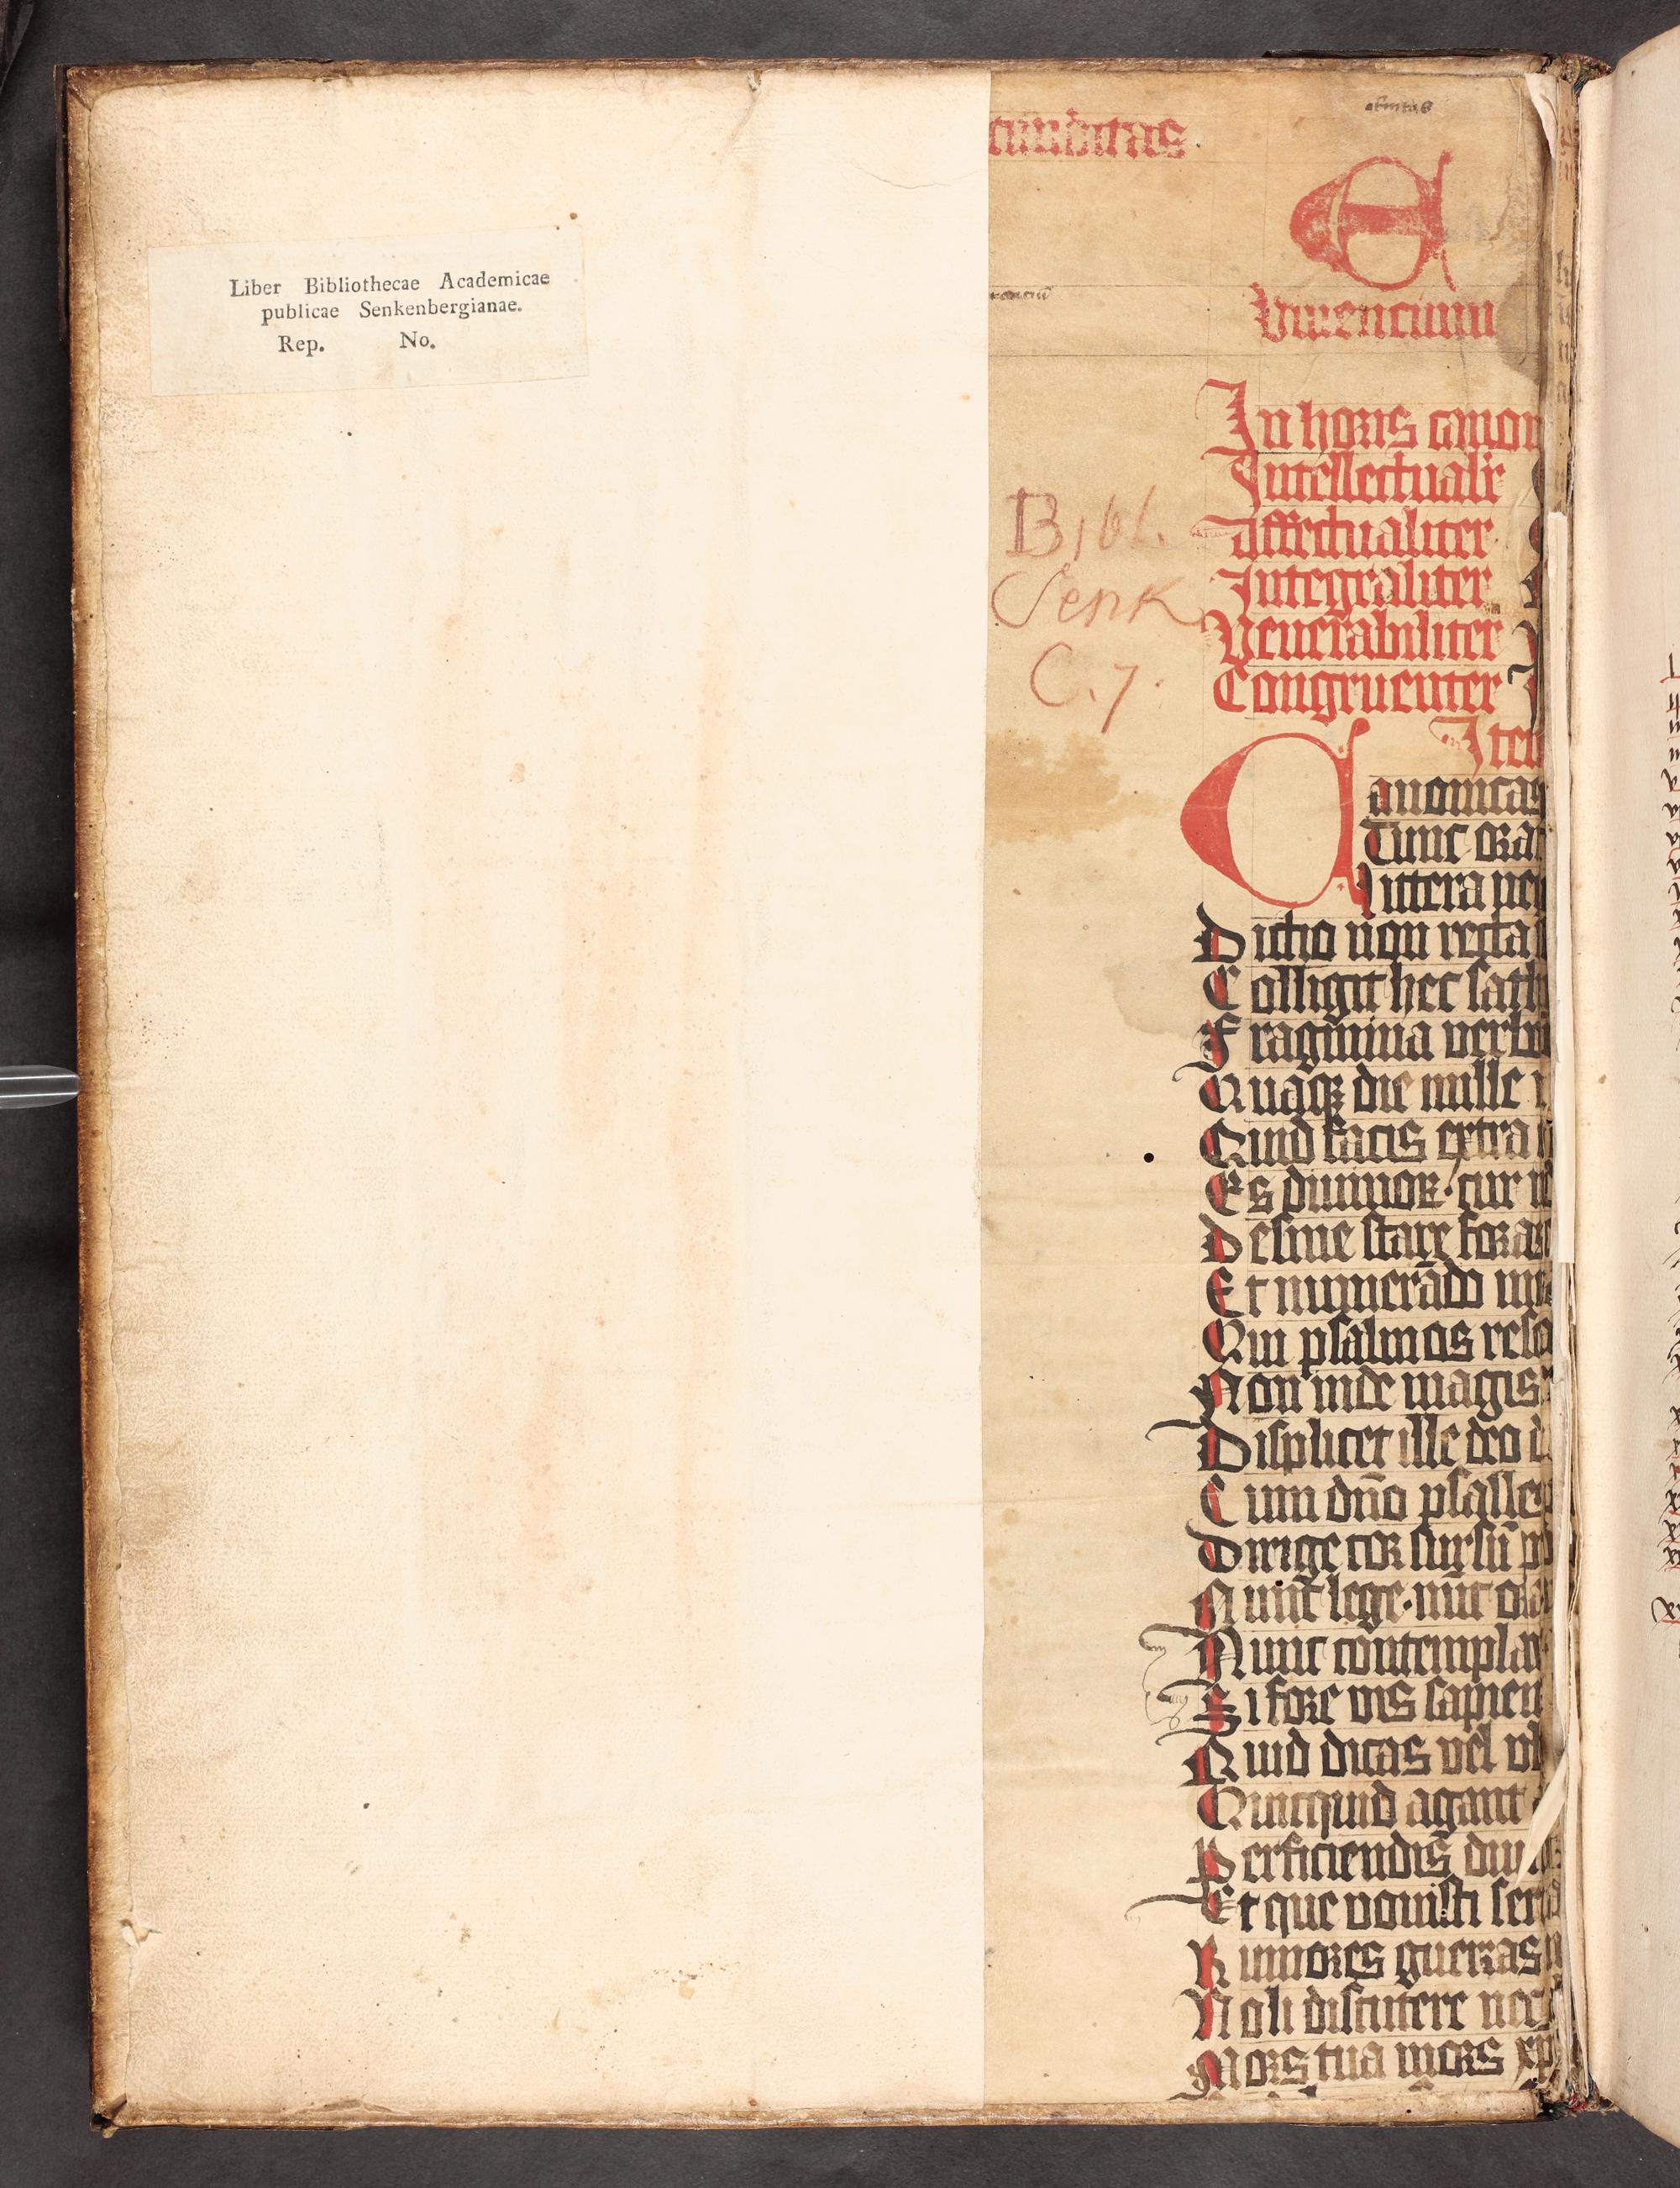 Liber Bibliothecae Academicae
publicae Senkenbergianae.
Rep. No.
Bibl.
Senk
C. 7.
Viuencium
In horis canon
Intellectualit̄
Affectualiter
Integraliter
Uenerabiliter
Congruenter
Item
Canonicas
Tunc ora
littera
Dictio non recta
Colligit hec sath
Fragmina verbo
Quaqꝫ die mille
Quid facis extra
Es dumnor cur
Desine stare foras
Et numerādo
Qui psalmos reso
Non inde magis
Displicet ille deo d
Cum dn̄o psalle
Dirige cor sursū
Nunc̄ lege nūc ora
Nunc contemplar
Si fore vis sapien
Quid dicas vel vb
Quicquid agant
Perficiendis diui
Et que nouisti
Rumores guerras
Noli discutere nec
Mors tua mors xp̄